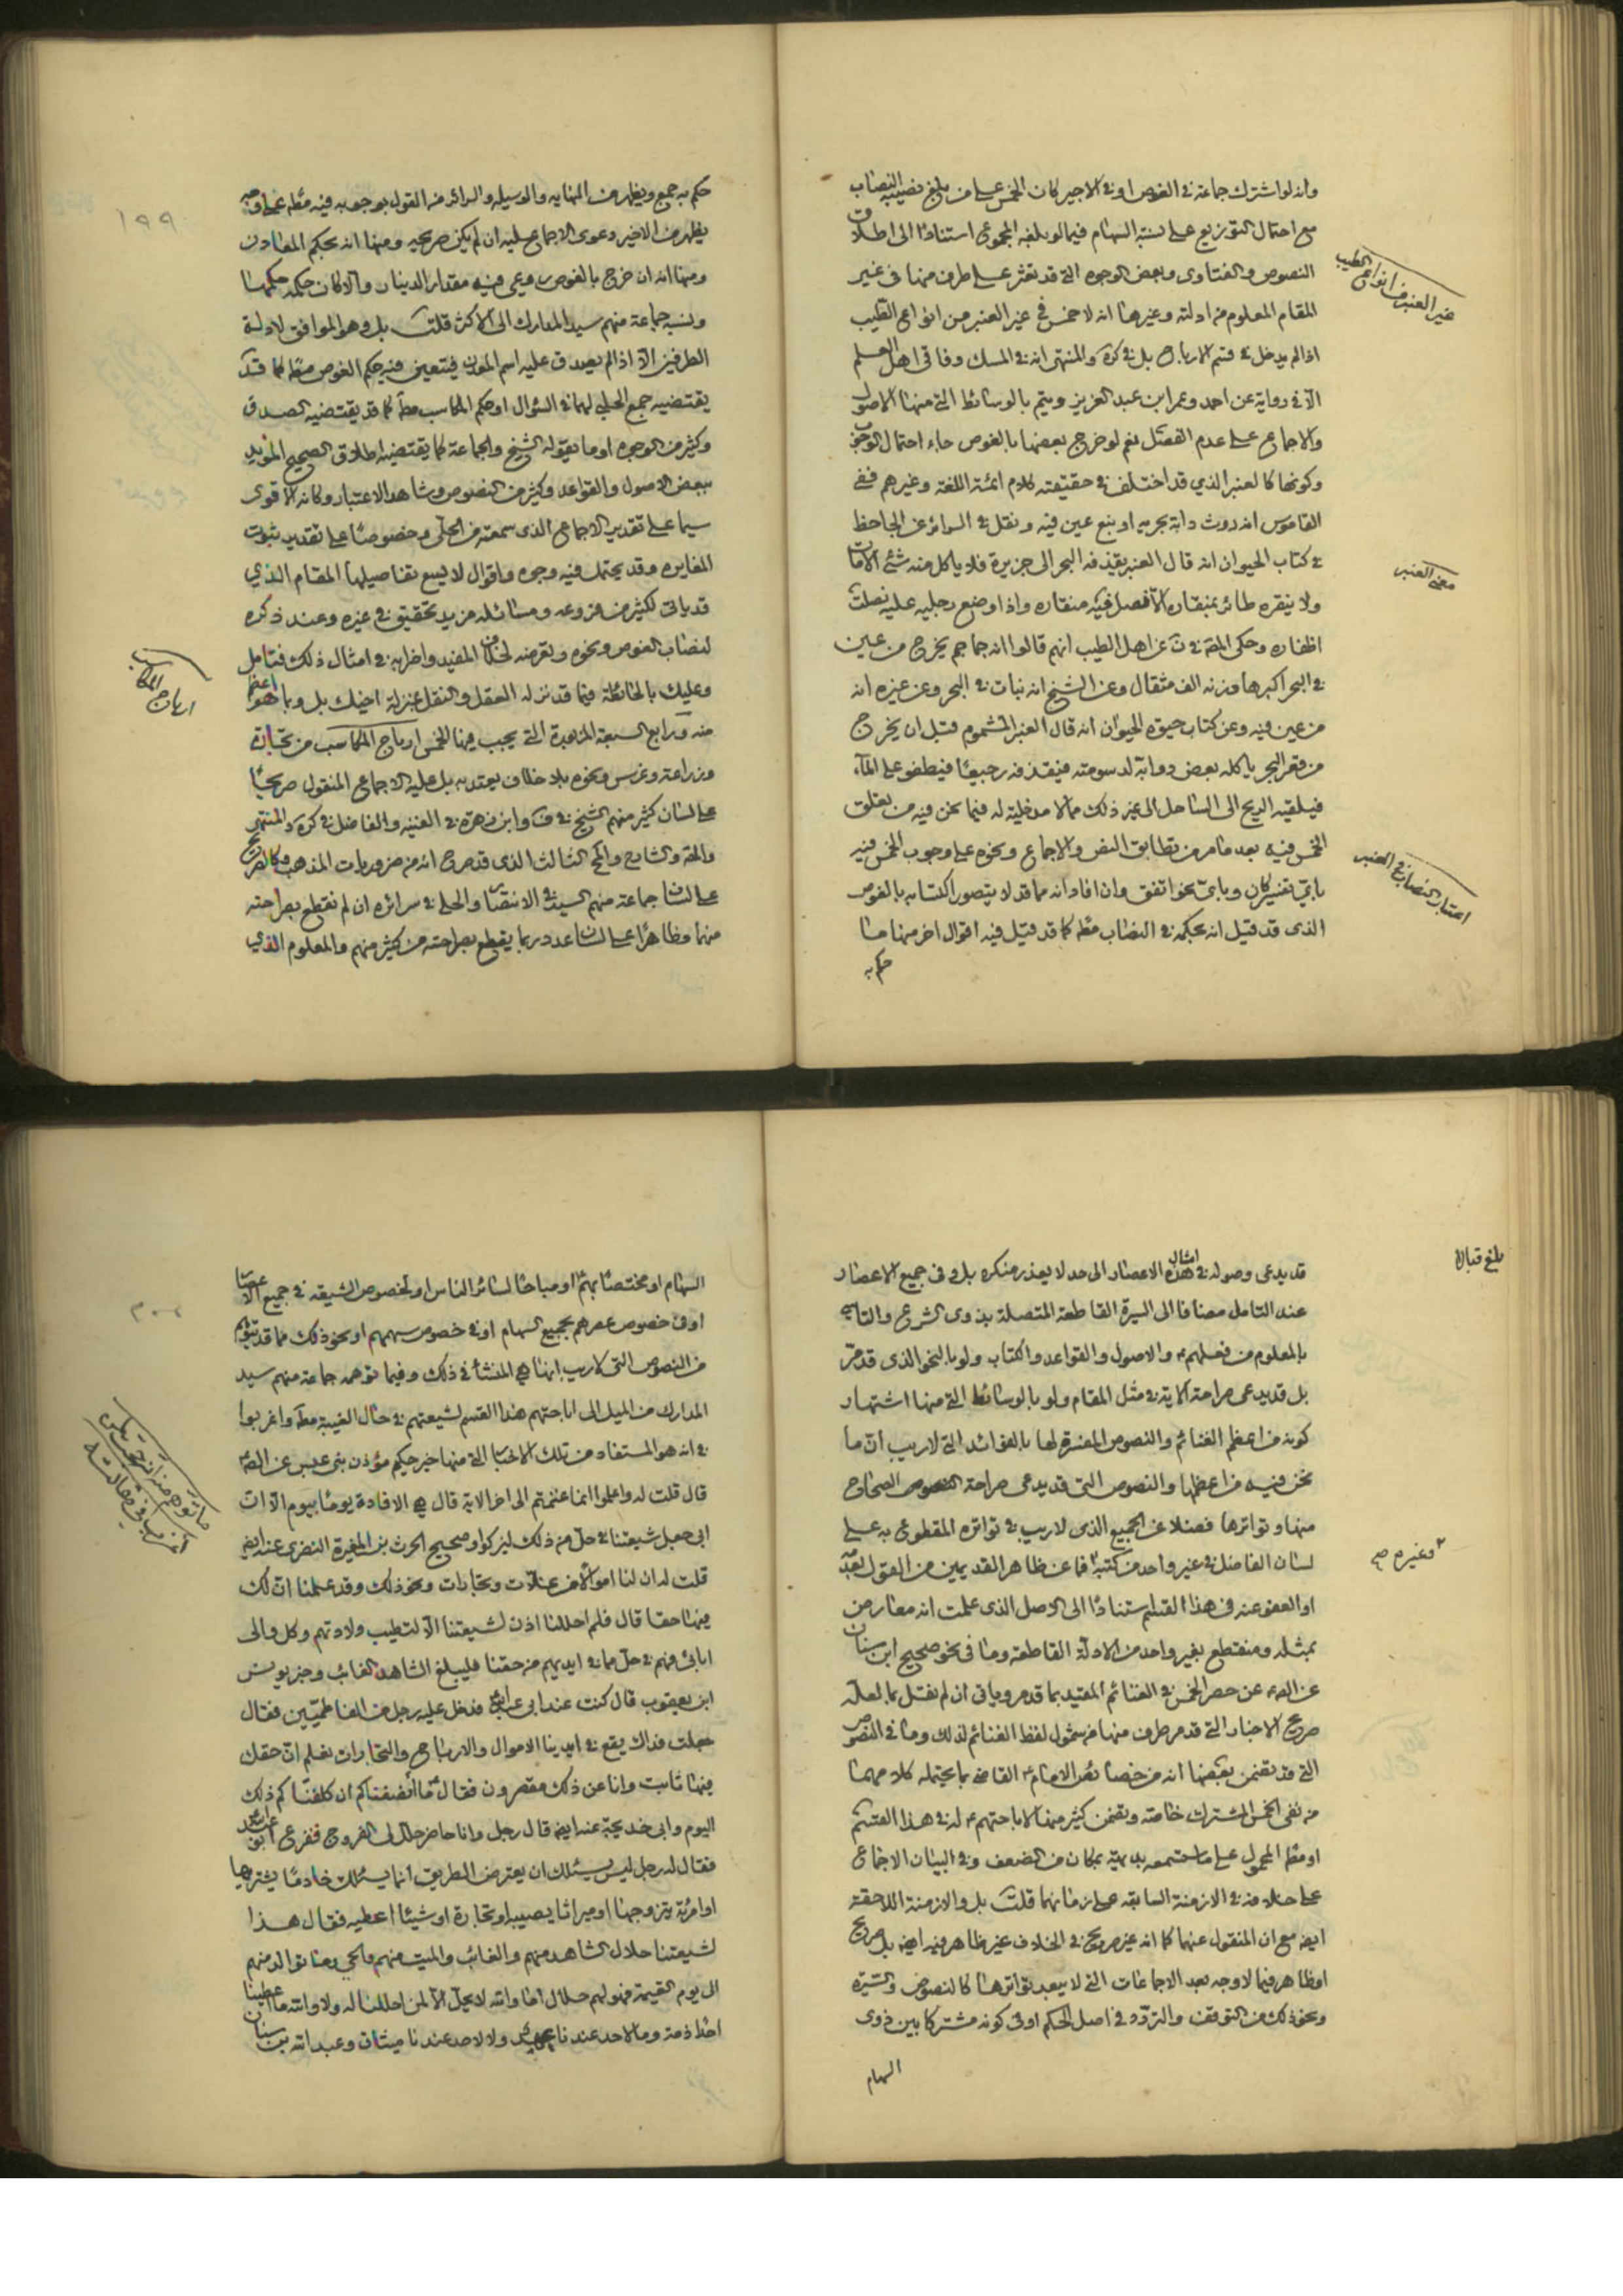 وانه لو اشترك جماعة في الغوص او في الاجير كان الخمس على من بلغ نصيبه النصاب
مع احتمال التوزيع على نسبة السهام فيما لو بلغه المجموع استنادا الى اطلاق
النصوص والفتاوى وبعض الوجوه التي قد تعثر على طرف منها في غير
المقام المعلوم من ادلته وغيرها انه لا خمس في غير العنبر من انواع الطيب
اذا لم يدخل في قسم الارباح بل في كره والمنتهى انه في المسك وفاقي اهل العلم
الا في رواية عن احمد وعمر ابن عبد العزيز ويتم بالوسائط التي منها الاصول
والاجماع على عدم الفصل نعم لو خرج بعضها بالغوص جاء احتمال الوجوب
وكونها كالعنبر الذي قد اختلف في حقيقته كلام ائمة اللغة وغيرهم ففي
القاموس انه روث دابة بحرية او نبع عين فيه ونقل في السرائر عن الجاحظ
في كتاب الحيوان انه قال العنبر يقذفه البحر الى جزيرة فلا ياكل منه شئ الا مات
ولا ينقره طائر بمنقاره الا فصل فيه منقاره واذا وضع رجليه عليه نصلت
اظفاره وحكى عن اهل الطيب انهم قالوا انه جماجم يخرج من عين
في البحر اكبرها وزنه الف مثقال وعن الشيخ انه نبات في البحر وعن غيره انه
من عين فيه وعن كتاب حيوة الحيوان انه قال العنبر المشموم قبل ان يخرج
من قعر البحر ياكله بعض دوابه لدسومته فيقذفه رجيعا فيطفو على الماء
فيلقيه الريح الى الساحل الى غير ذلك مما لا مدخلية له فيما نحن فيه من تعلق
الخمس فيه بعد ما مر من تطابق النص والاجماع ونحوه على وجوب الخمس فيه
باي تفسير كان وباي نحو اتفق وان افاد انه مما قد لا يتصور اكتسابه بالغوص
الذي قد قيل انه بحكمه في النصاب مطلقا كما قد قيل فيه اقوال اخر منها ما
حكم به
غير العنبر من انواع الطيب
معنى العنبر
اعتبار النصاب في العنبر
حكم به جمع ويظهر من النهاية والوسيلة والسرائر من القول بوجوبه فيه مطلقا
يظهر من الاخير دعوى الاجماع عليه ان لم يكن صريحه ومنها انه بحكم المعادن
ومنها انه ان خرج بالغوص روعي فيه مقدار الدينار والا كان حكمه حكمها
ونسبه جماعة منهم سيد المدارك الى الاكثر قلت بل وهو الموافق لادلة
الطرفين الا اذا لم يصدق عليه اسم المعدن فيتعين فيه حكم الغوص كما قد
يقتضيه جمع الحلبي لهما في السؤال او حكم المكاسب مطلقا كما قد يقتضيه الصدق
وكثير من الوجوه او ما يقوله الشيخ والجماعة كما يقتضيه اطلاق الصحيح المؤيد
ببعض الاصول والقواعد وكثير من النصوص وشاهد الاعتبار وكانه الاقوى
سيما على تقدير الاجماع الذي سمعته من الحلي وخصوصا على تقدير ثبوت
المغايرة وقد يحتمل فيه وجوه واقوال لا يسع تفاصيلها المقام الذي
قد ياتي لكثير من فروعه ومسائله مزيد تحقيق في غيره وعند ذكره
لنصاب الغوص ونحوه وتعرضه لخلاف المفيد واضرابه في امثال ذلك فتامل
وعليك بالحائطة فيما قد نزله العقل والنقل بمنزلة اخيك بل وبما هو اعظم
منه ورابع السبعة المزبورة التي يجب فيها الخمس ارباح المكاسب من تجارة
وزراعة وغرس ونحوه بلا خلاف يعتد به بل عليه الاجماع المنقول صريحا
على لسان كثير منهم الشيخ في ف وابن زهرة في الغنية والفاضل في كره والمنتهى
الثالث الذي قد صرح انه من ضروريات المذهب
على لسان جماعة منهم السيد في الانتصار والحلي في سرائره ان لم نقطع بصراحته
منهما وظاهرا على لسان عدد ربما يقطع بصراحته من كثير منهم والمعلوم الذي
ارباح المكاسب
١٩٩
قد يدعى وصوله في امثال هذه الاعصار الى حد لا يعذر منكره بل وفي جميع الاعصار
عند التامل مضافا الى السيرة القاطعة المتصلة بذوي الشرع والتاسي
بالمعلوم من فعلهم والاصول والقواعد والكتاب ولو بالنحو الذي قد مر
بل قد يدعى صراحة الاية في مثل المقام ولو بالوسائط التي منها اشتهار
كونه من اعظم الغنائم والنصوص المفسرة لها بالفوائد التي لا ريب ان ما
نحن فيه من اعظمها والنصوص التي قد يدعى صراحة النصوص الصحاح
منها وتواترها فضلا عن الجميع الذي لا ريب في تواتره المقطوع به على
لسان الفاضل في غير واحد من كتبه فما عن ظاهر القديمين من القول
او العفو عنه في هذا القسم استنادا الى الاصل الذي علمت انه معارض
بمثله ومنقطع بغير واحد من الادلة القاطعة وما في نحو صحيح ابن سنان
عن حصر الخمس في الغنائم المقيد بما قد مر وياتي ان لم نقل بما لعله
صريح الاخبار التي قد مر طرف منها من شمول لفظ الغنائم لذلك وما في النصوص
التي قد تضمن بعضها انه من خصائص الامام القاضي بما يحتمله كلامهما
من نفي الخمس المشترك خاصة وتضمن كثير منها لاباحتهم له في هذا القسم
او مطلقا المحمول على ما ستسمعه بديهية بمكان من الضعف وفي البيان الاجماع
على خلافه في الازمنة السابقة على زمانهما قلت بل والازمنة اللاحقة
ايضا مع ان المنقول عنهما كما انه غير صريح في الخلاف غير ظاهر فيه ايضا بل صريح
او ظاهر فيما لا وجه بعد الاجماعات التي لا يبعد تواترها كالنصوص والسيرة
ونحو ذلك من التوقف والتردد في اصل الحكم او في كونه مشتركا بين ذوي
السهام
بلغ قباله
وغيره صح
السهام او مختصا بهم او مباحا لسائر الناس او لخصوص الشيعة في جميع الاعصار
او في خصوص عصرهم بجميع السهام او في خصوص سهمهم او نحو ذلك مما قد يتوهم
من النصوص التي لا ريب انها هي المنشأ في ذلك وفيما توهمه جماعة منهم سيد
المدارك من الميل الى اباحتهم هذا القسم لشيعتهم في حال الغيبة مطلقا واغربوا
في انه هو المستفاد من تلك الاخبار التي منها خبر حكيم مؤذن بني عبس عن
قال قلت له واعلموا انما غنمتم الى اخر الاية قال هي الافادة يوما بيوم الا ان
ابي جعل شيعتنا في حل من ذلك ليزكوا وصحيح الحرث بن المغيرة النضري عنه ايضا
قلت له ان لنا اموالا من غلات وتجارات ونحو ذلك وقد علمنا ان لك
فيها حقا قال فلم احللنا اذن لشيعتنا الا لتطيب ولادتهم وكل من والى
ابائي فهم في حل مما في ايديهم من حقنا فليبلغ الشاهد الغائب وخبر يونس
ابن يعقوب قال كنت عند ابي عبد الله فدخل عليه رجل من القماطين فقال
جعلت فداك يقع في ايدينا الاموال والارباح والتجارات نعلم ان حقك
فيها ثابت وانا عن ذلك مقصرون فقال ما انصفناكم ان كلفناكم ذلك
اليوم وابي خديجة عنه ايضا قال رجل وانا حاضر حلل لي الفروج ففزع ابو عبد الله
فقال له رجل ليس يسئلك ان يعترض الطريق انما يسئلك خادما يشتريها
او امرئة يتزوجها او ميراثا يصيبه او تجارة او شيئا اعطيه فقال هذا
لشيعتنا حلال الشاهد منهم والغائب والميت منهم والحي وما توالد منهم
الى يوم القيمة فهو لهم حلال اما والله لا يحل الا لمن احللنا له ولا والله ما اعطينا
احدا ذمة وما لاحد عندنا عهد ولا لاحد عندنا ميثاق وعبد الله بن سنان